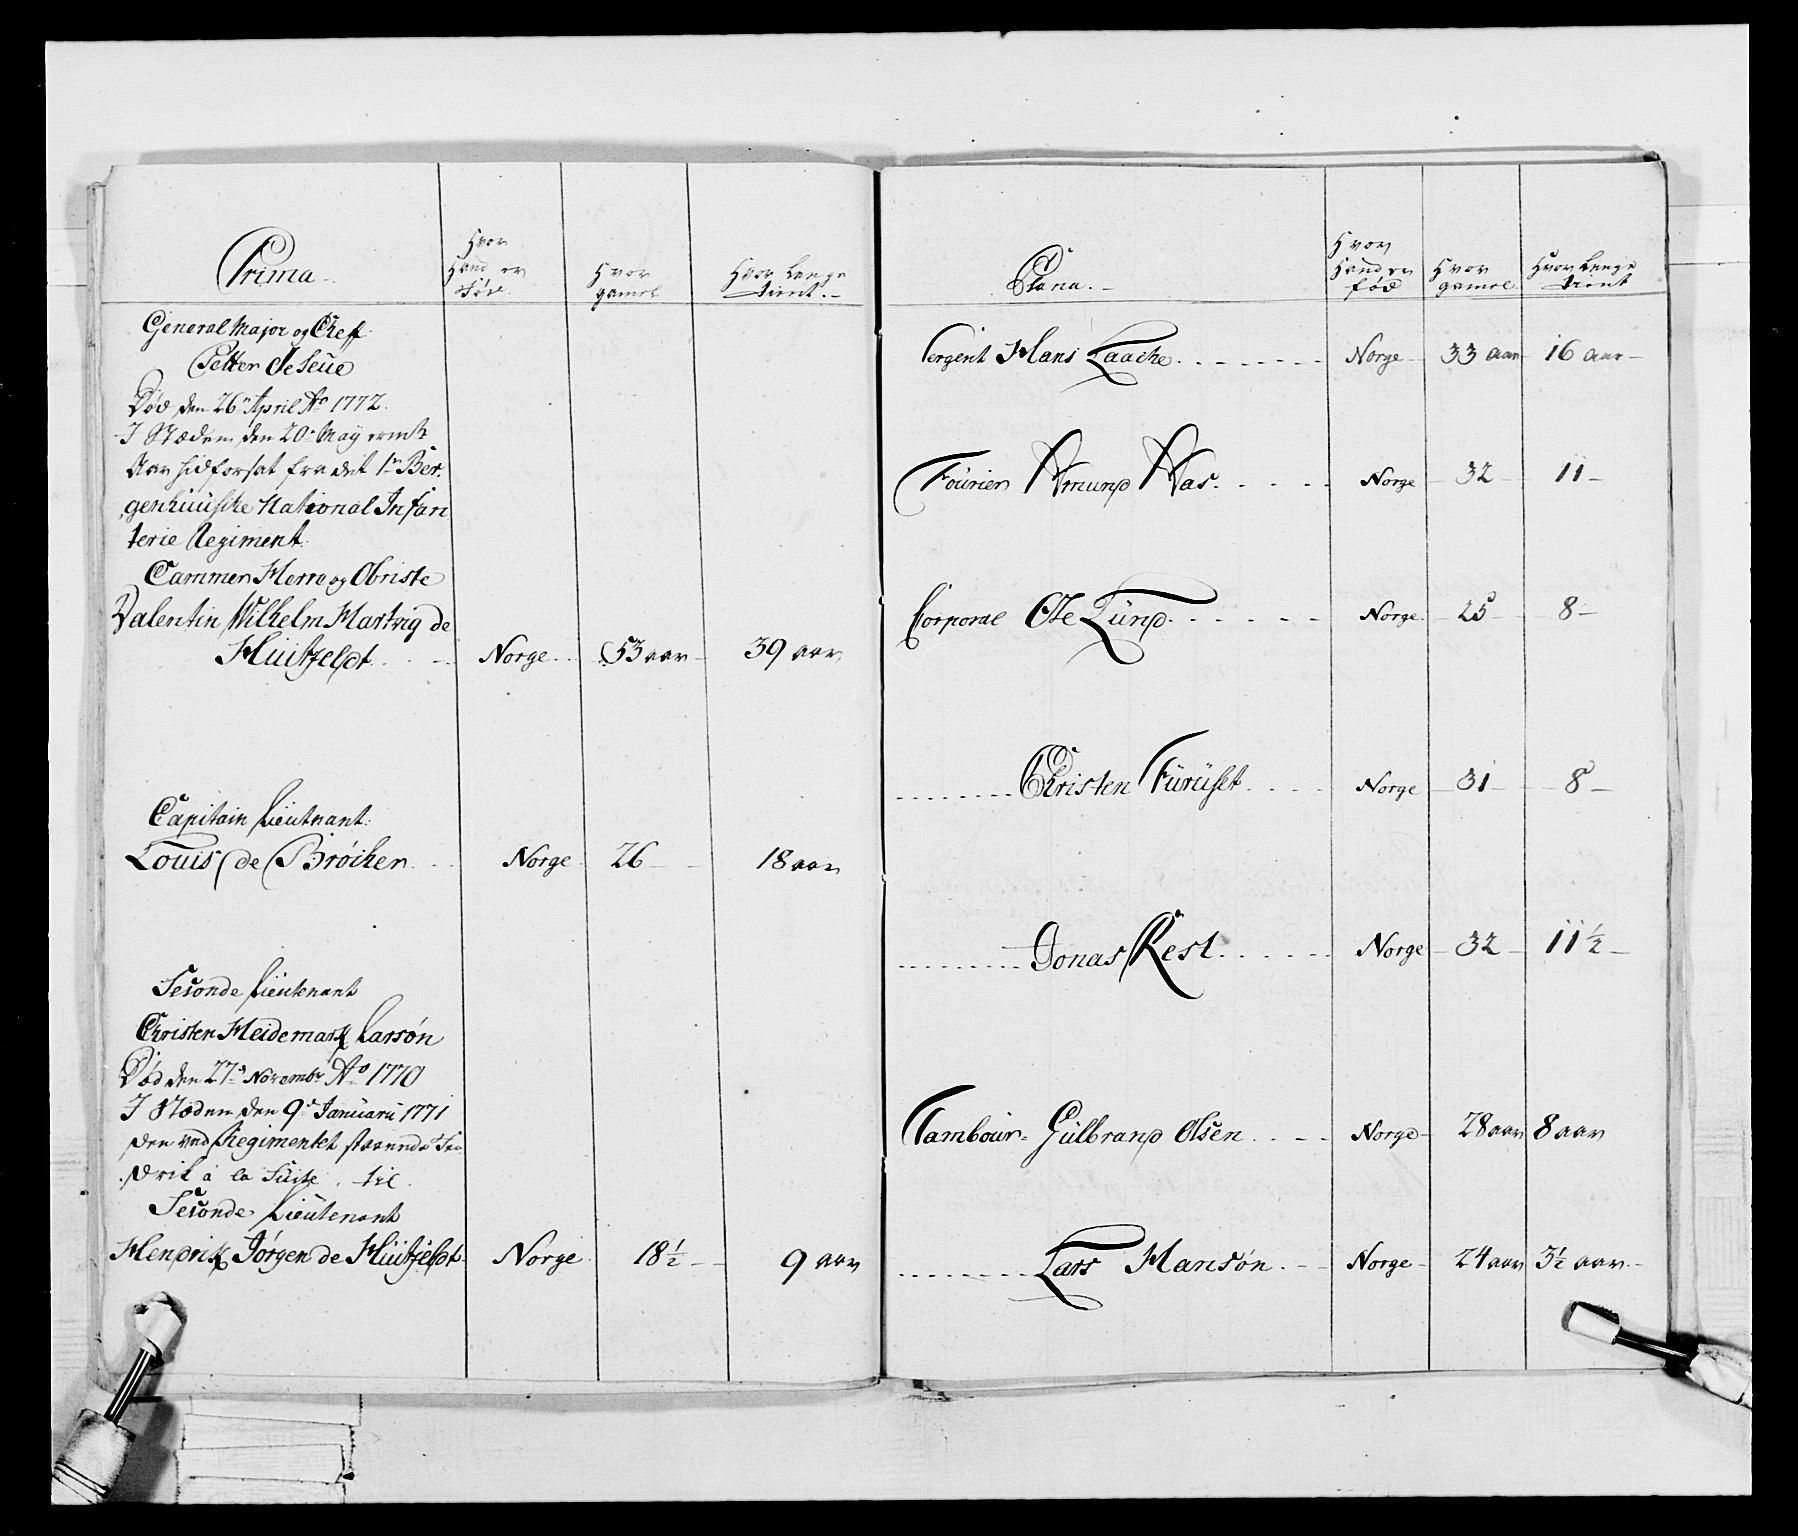 Prima
Hvor
Hand er
Fød
Hvor
gamel
Hvor Lenge
tient.
General Major og Cheff
Petter de Seüe
Død den 26 April Ao 1772.
I Stæden den 20 May
Aar hidforsat fra det 1te Ber-
genhuusiske National Infan
terie Regiment.
Cammer Herre og Obriste
Valentin Wilhelm Hartvig de
Hüitfeldt Norge 53 aar 39 aar
Capitain Lieutnant:
Louis de Brøcker Norge 26 18 aar
Seconde Lieutenant
Christen Heidemark Larsøn
Død den 27de Novembr Ao 1770
I Stæden den 9de Januarii 1771
den ved Regimentet staaende Fen
drik a la Suite, til
Seconde Lieutenant
Hendrik Jørgen de Hüitfeldt Norge 18 1/2 9 aar
Plana.
Hvor
Hand er
fød
Hvor
gamel.
Hvor Lenge
tient
Sergent Hans Laache Norge 33 aar 16 aar
Fourier Amund Aas Norge 32 11
Corporal Ole Lünd Norge 25 8
Christen Fürüset Norge 31 8
Jonas Rest Norge 32 11 1/2
Tambour Gülbrand Olsen Norge 28 aar 8 aar
Lars Hansøn Norge 24 aar 3 1/2 aar